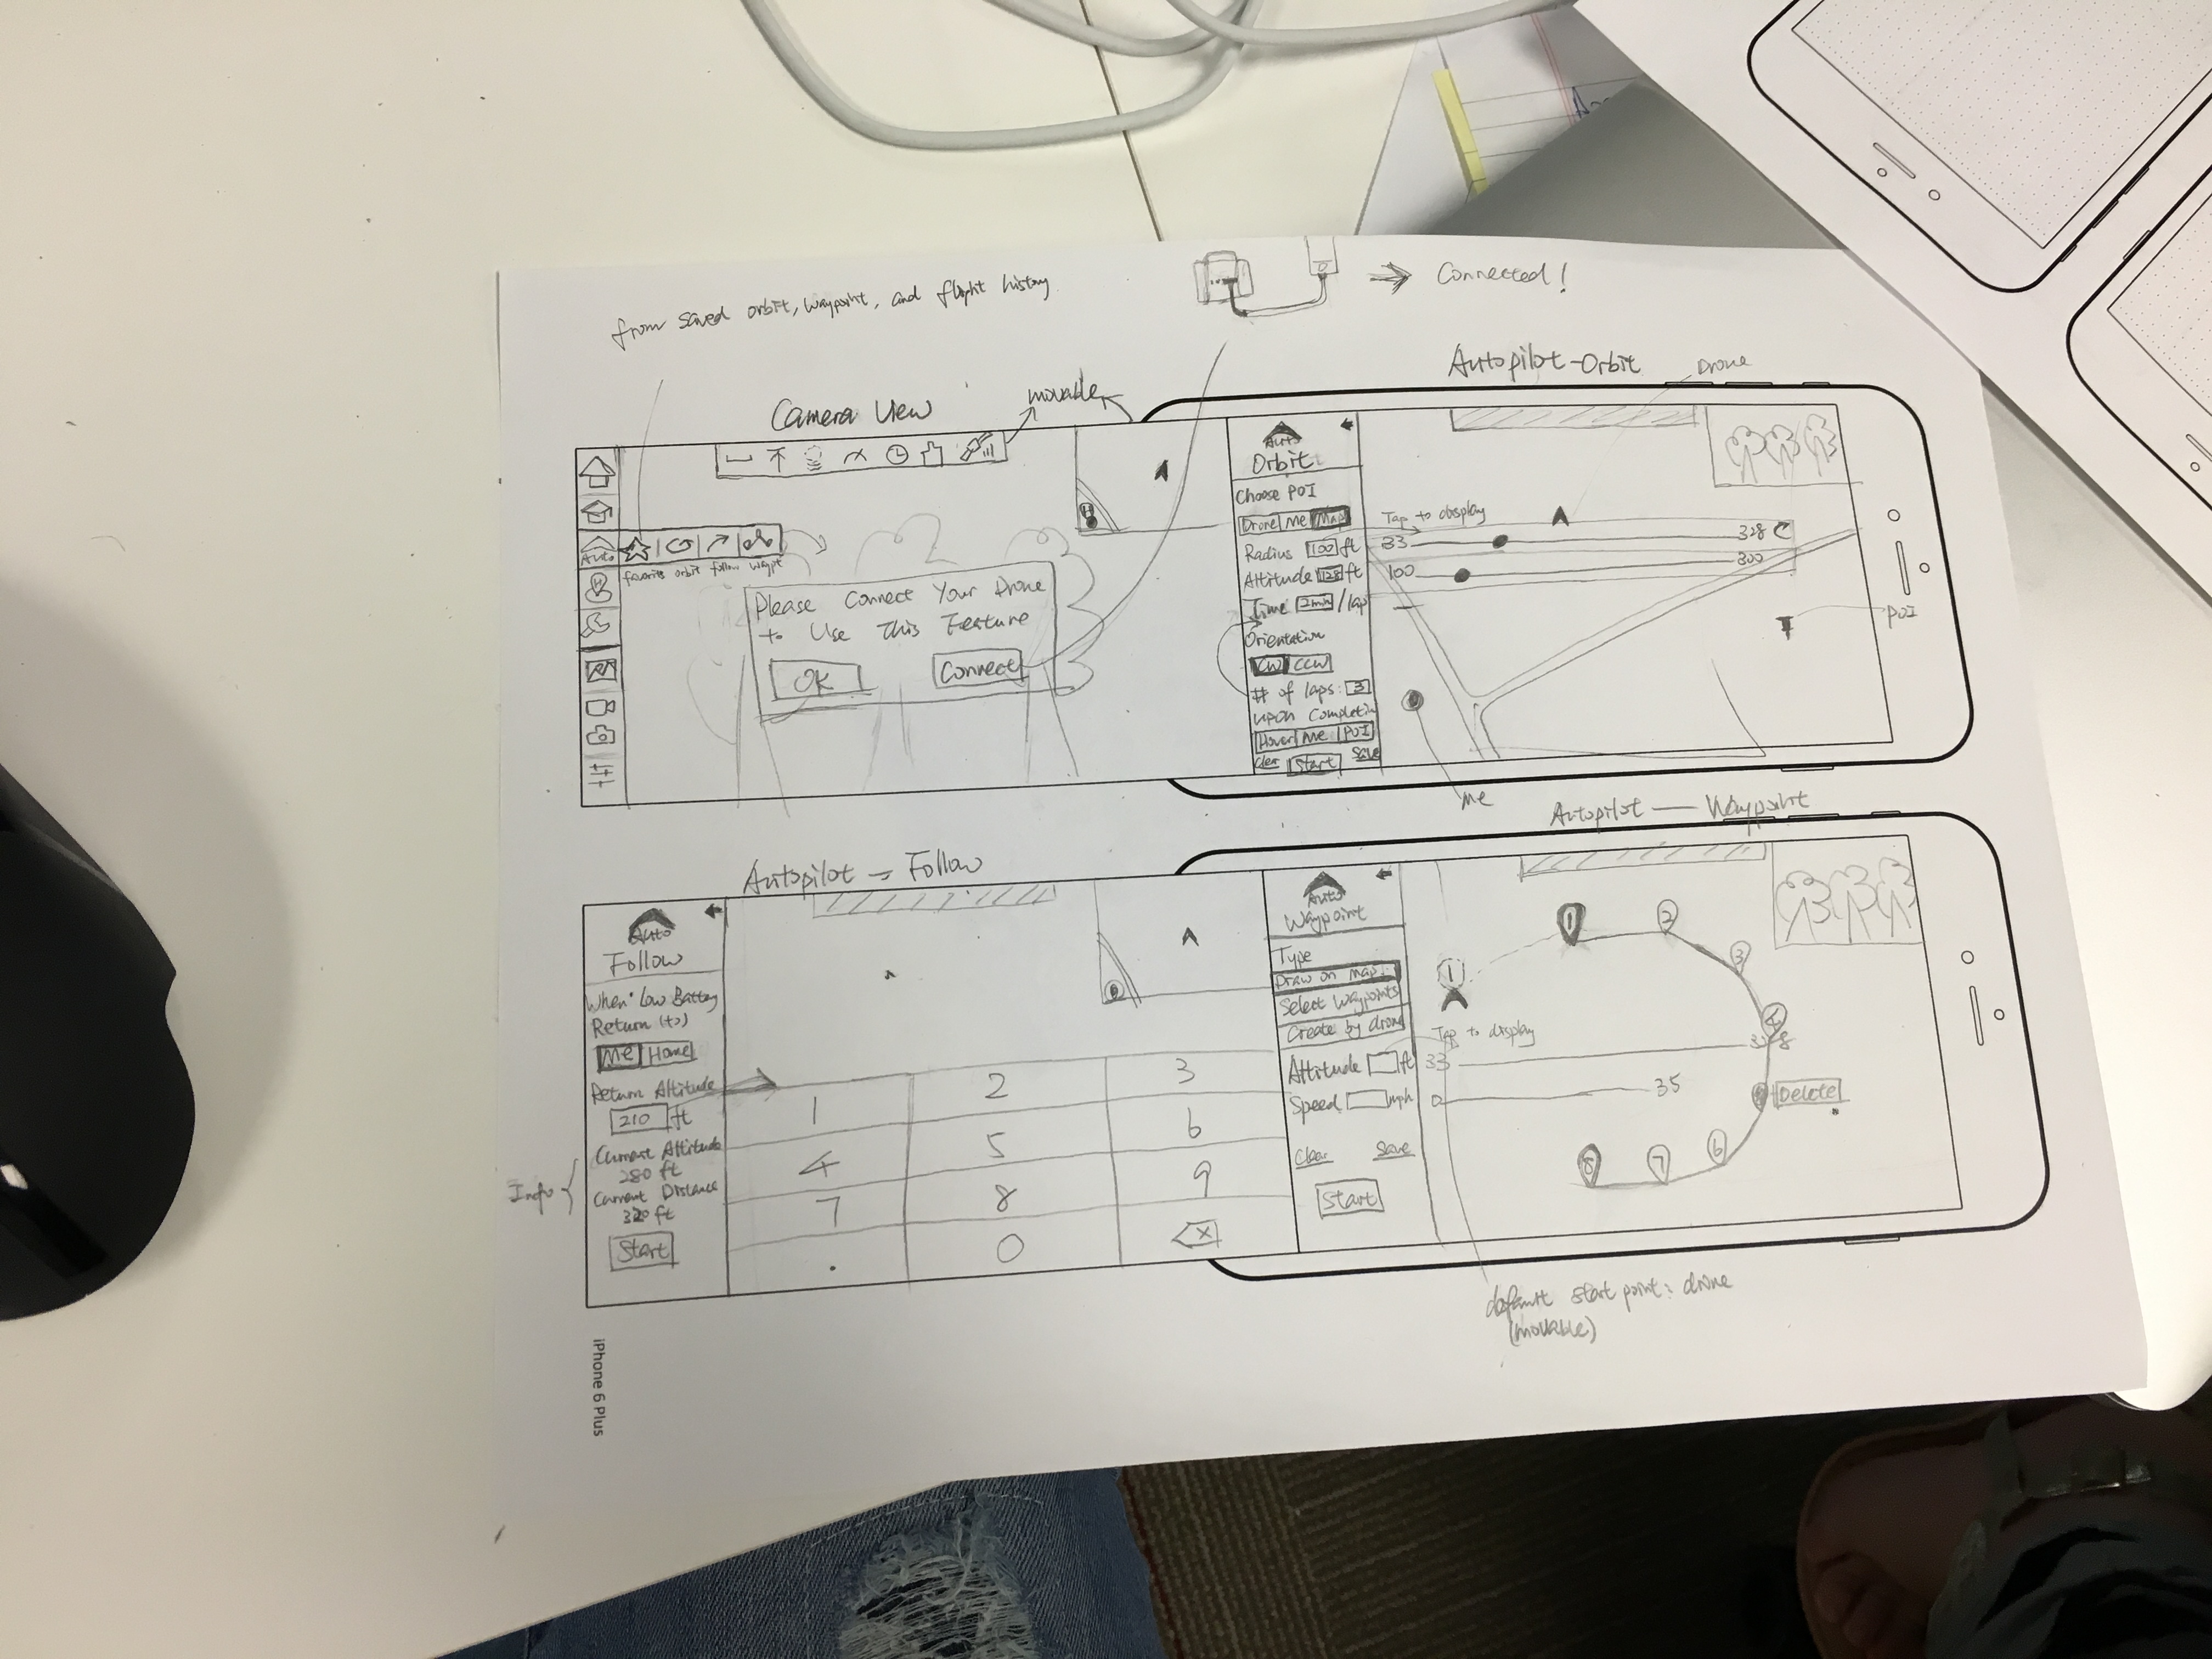 from saved orbit, waypoint, and flight history
→ Connected!
Camera View
movable
Autopilot-Orbit
Drone
Auto
favorite orbit follow waypt
Please Connect Your Drone
to Use This Feature
OK
Connect
Auto
Orbit
Choose POI
Drone Me Map
Radius 100 ft
Altitude 128 ft
Time 2min /lap
Orientation
CW CCW
# of laps: 3
upon Completin
Hover Me POI
Clear Start Save
Tap to display
33 328
100 300
POI
me
Autopilot - Follow
Auto
Follow
When Low Battery
Return (to)
Me Home
Return Altitude
210 ft
Current Altitude
280 ft
Current Distance
320 ft
Start
Info
1 2 3
4 5 6
7 8 9
. 0 X
Autopilot — Waypoint
Auto
Waypoint
Type
Draw on map
Select Waypoints
Create by drone
Altitude ft
Speed mph
Clear Save
Start
1
1 2 3
Tap to display
33 328
0 35
Delete
8 7 6
default start point: drone
(movable)
iPhone 6 Plus